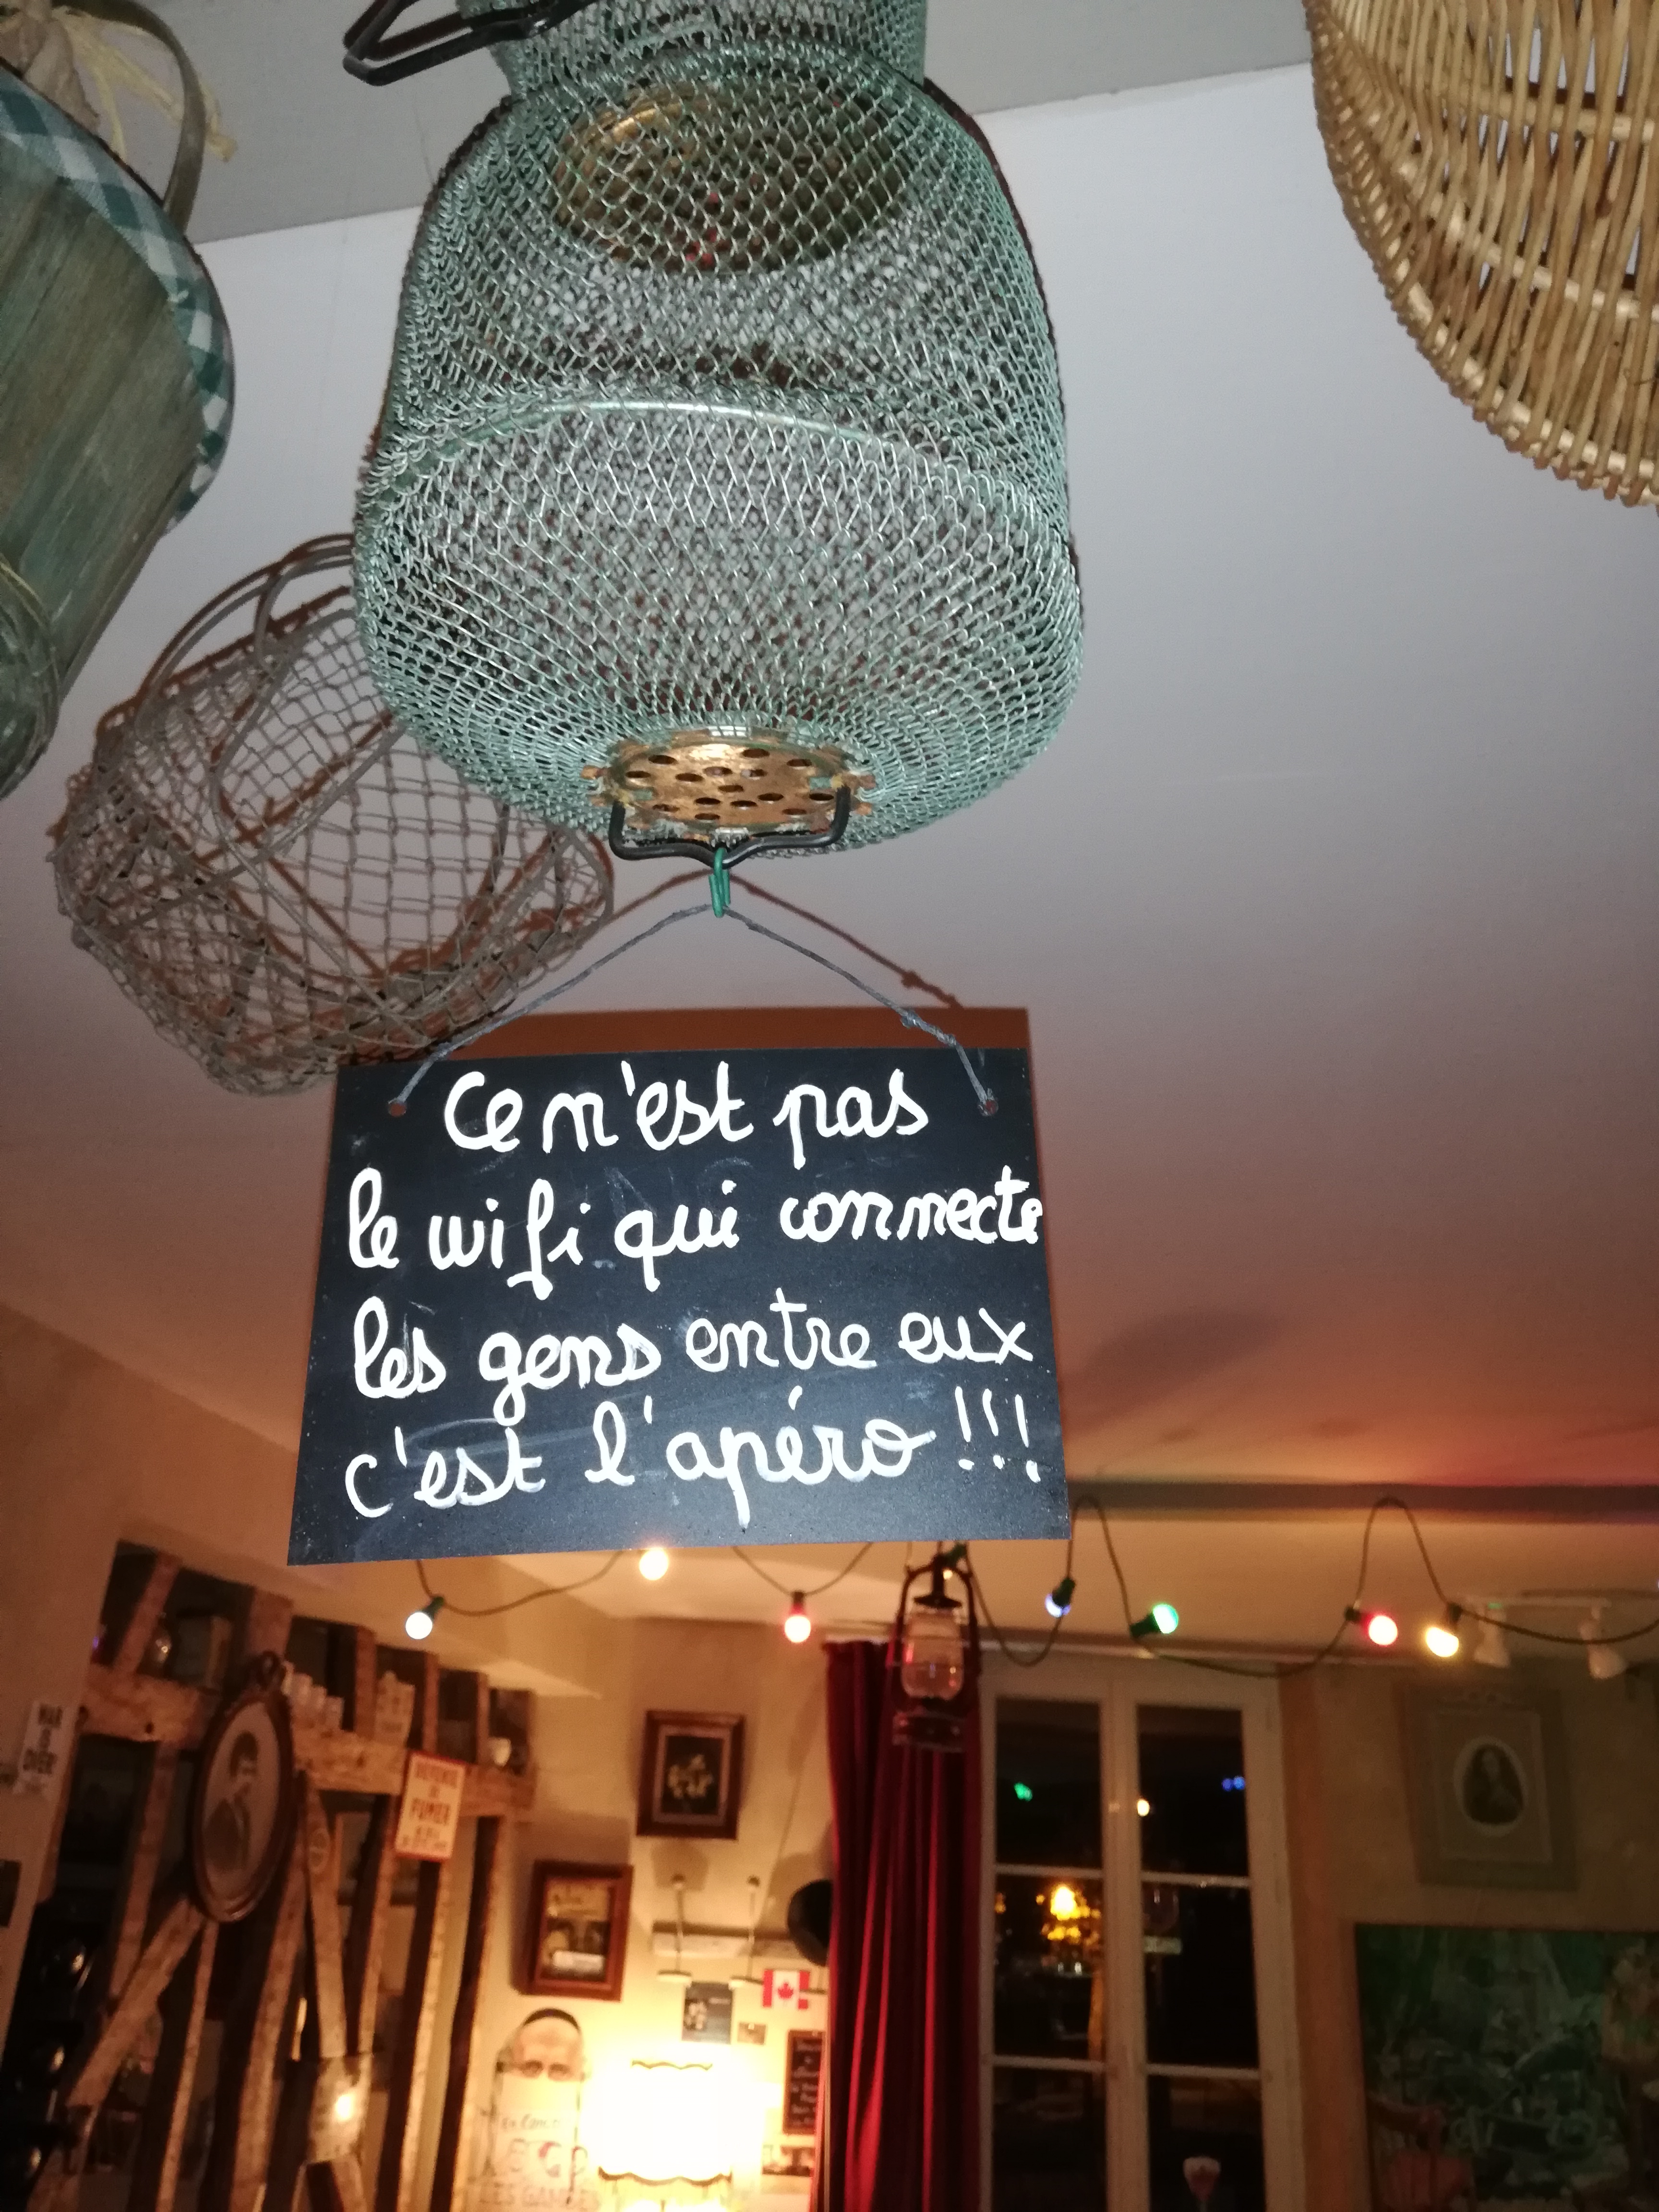 Ce n'est pas
le wifi qui connecte
les gens entre eux
c'est l'apéro !!!
DEFENSE
DE
FUMER